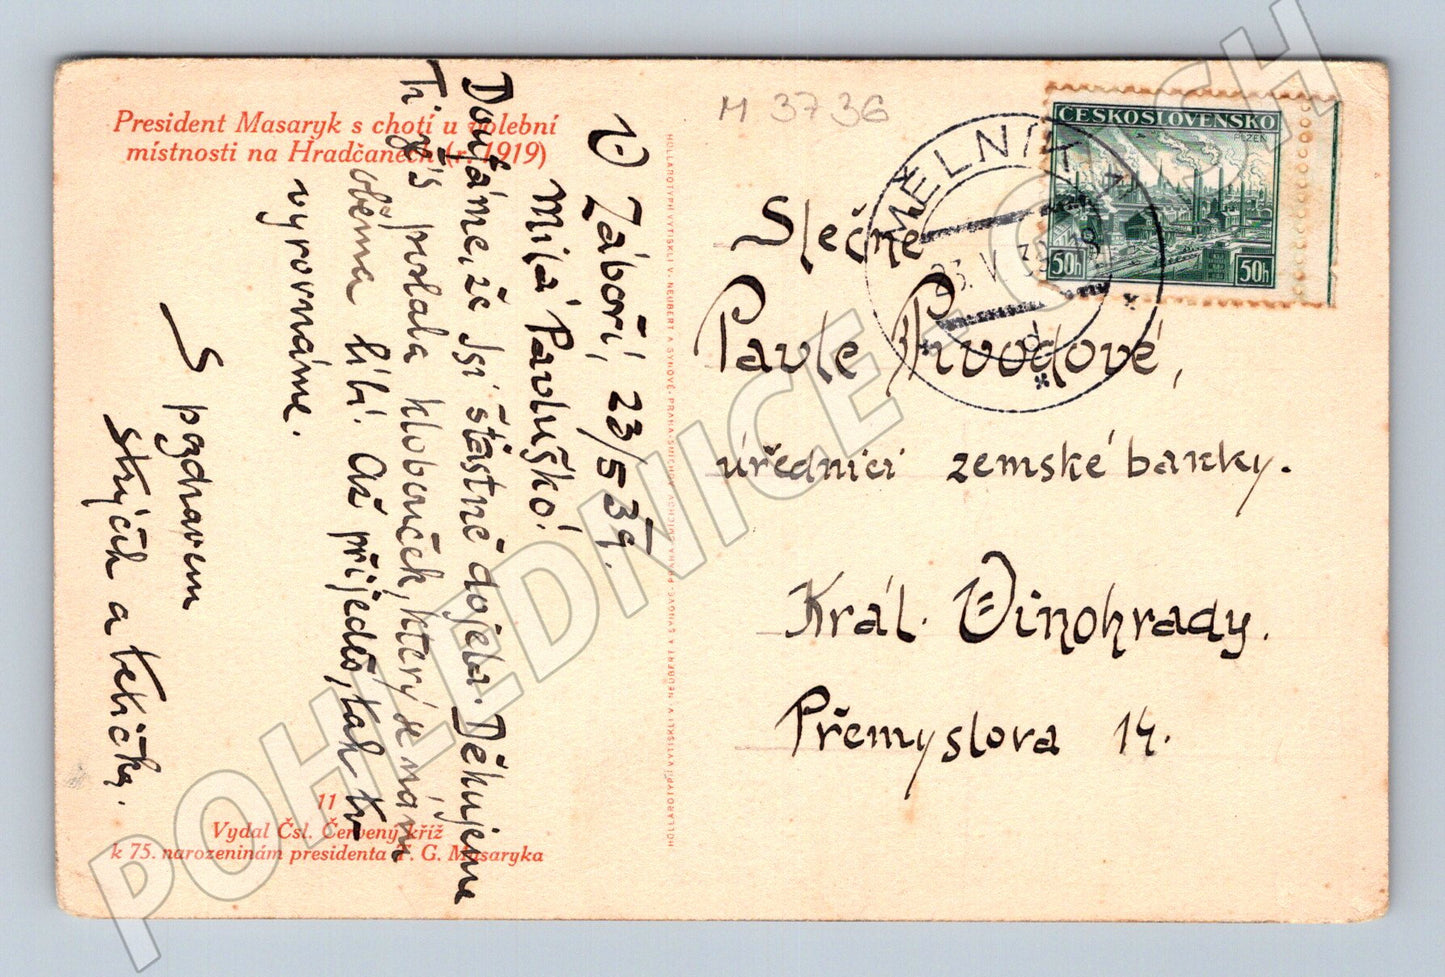 President Masaryk s chotí u volební
místnosti na Hradčanech (r. 1919)
M 3736
V Záboří, 23/5 39.
Milá Pavluško!
Doufáme, že jsi šťastně dojela. Děkujeme
Ti, žes poslala klobouček, který se nám
oběma líbí. Až přijedeš, tak to
vyrovnáme.
S pozdravem
strýček a tetička.
11
Vydal Čsl. Červený kříž
k 75. narozeninám presidenta T. G. Masaryka
HOLLAROTYPII VYTISKLI V. NEUBERT A SYNOVÉ, PRAHA-SMÍCHOV
ČESKOSLOVENSKO
PLZEŇ
50h 50h
MĚLNÍK 1
23. V. 39-18
d
Slečně
Pavle Pivodové,
úřednici zemské banky.
Král. Vinohrady.
Přemyslova 14.
POHLEDNICE - CASH